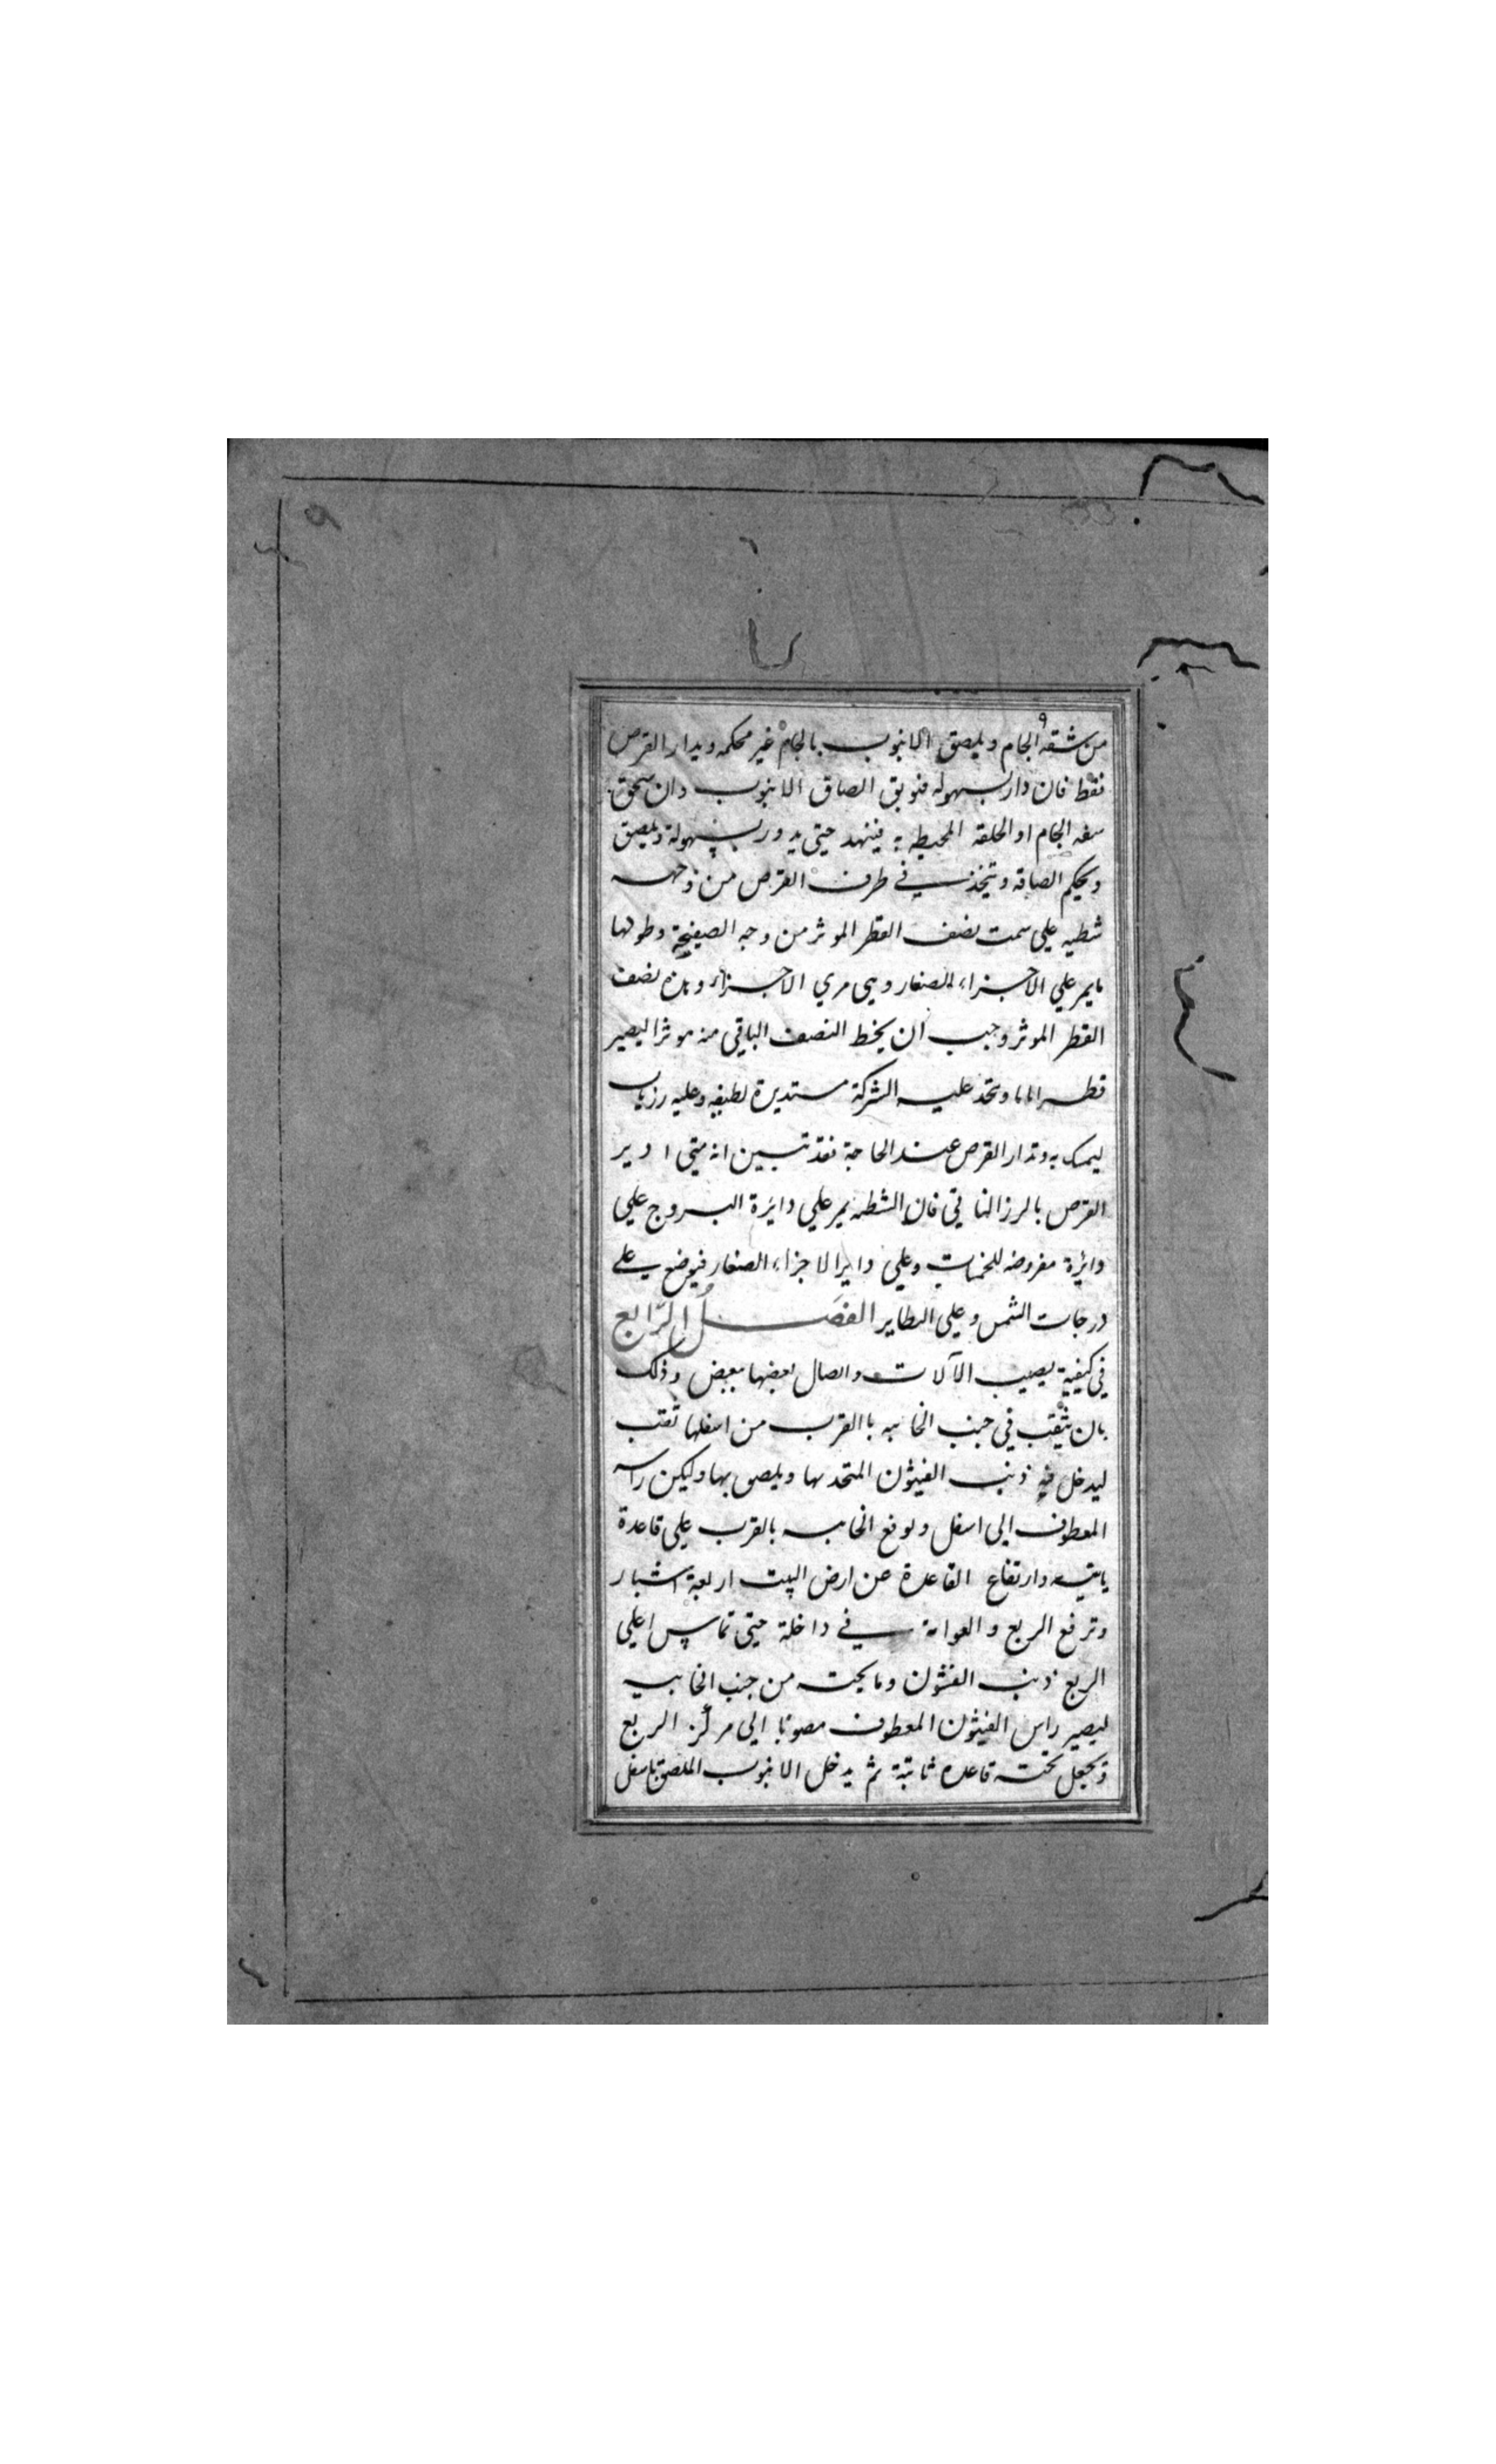 ٩
من شقة الجام ويلصق الانبوب بالجام غير محكمه ويدار القرص
فقط فان دار بسهوله فنوبق الصاق الانبوب وان سحق
سفه الجام او الحلقه المحيطه به فينهد حتى يدور بسهولة ويلصق
ويحكم الصاقه ويتخذ في طرف القرص من وجهه
شطيه علي سمت نصف القطر الموثر من وجه الصفيحة وطولها
ما يمر علي الاجزاء الصغار وهي مري الاجزاء وبازاء نصف
القطر الموثر وجب ان يخط النصف الباقي منه موثرا ليصير
قطرا تاما ويتخذ عليه الشركة مستديرة لطيفه وعليه رزتان
ليمسك به وتدار القرص عند الحاجة فقد تبين انه متي ادير
القرص بالرزالناتي فان الشطيه يمر علي دائرة البروج علي
دائرة مفروضه للخمسات وعلي دايرا لاجزاء الصغار فيوضع علي
درجات الشمس وعلي النظاير الفصل الرابع
في كيفية نصيب الآلات واتصال بعضها ببعض وذلك
بان يثقب في جنب الخابيه با القرب من اسفلها ثقب
ليدخل فيه ذنب الفيثون المتخد بها ويلصق بها وليكن راسه
المعطوف الي اسفل وتوضع الخابيه بالقرب علي قاعدة
ثابتيه وارتفاع القاعدة عن ارض البيت اربعة اشبار
وترفع الربع و العوامة في داخلة حتي تماس اعلي
الربع ذنب الفيثون وما يحته من جنب الخابيه
ليصير راس الفيثون المعطوف مصوبا الي مركز الربع
وتجعل تحته قاعده ثابتة ثم يدخل الانبوب الملصق باسفل